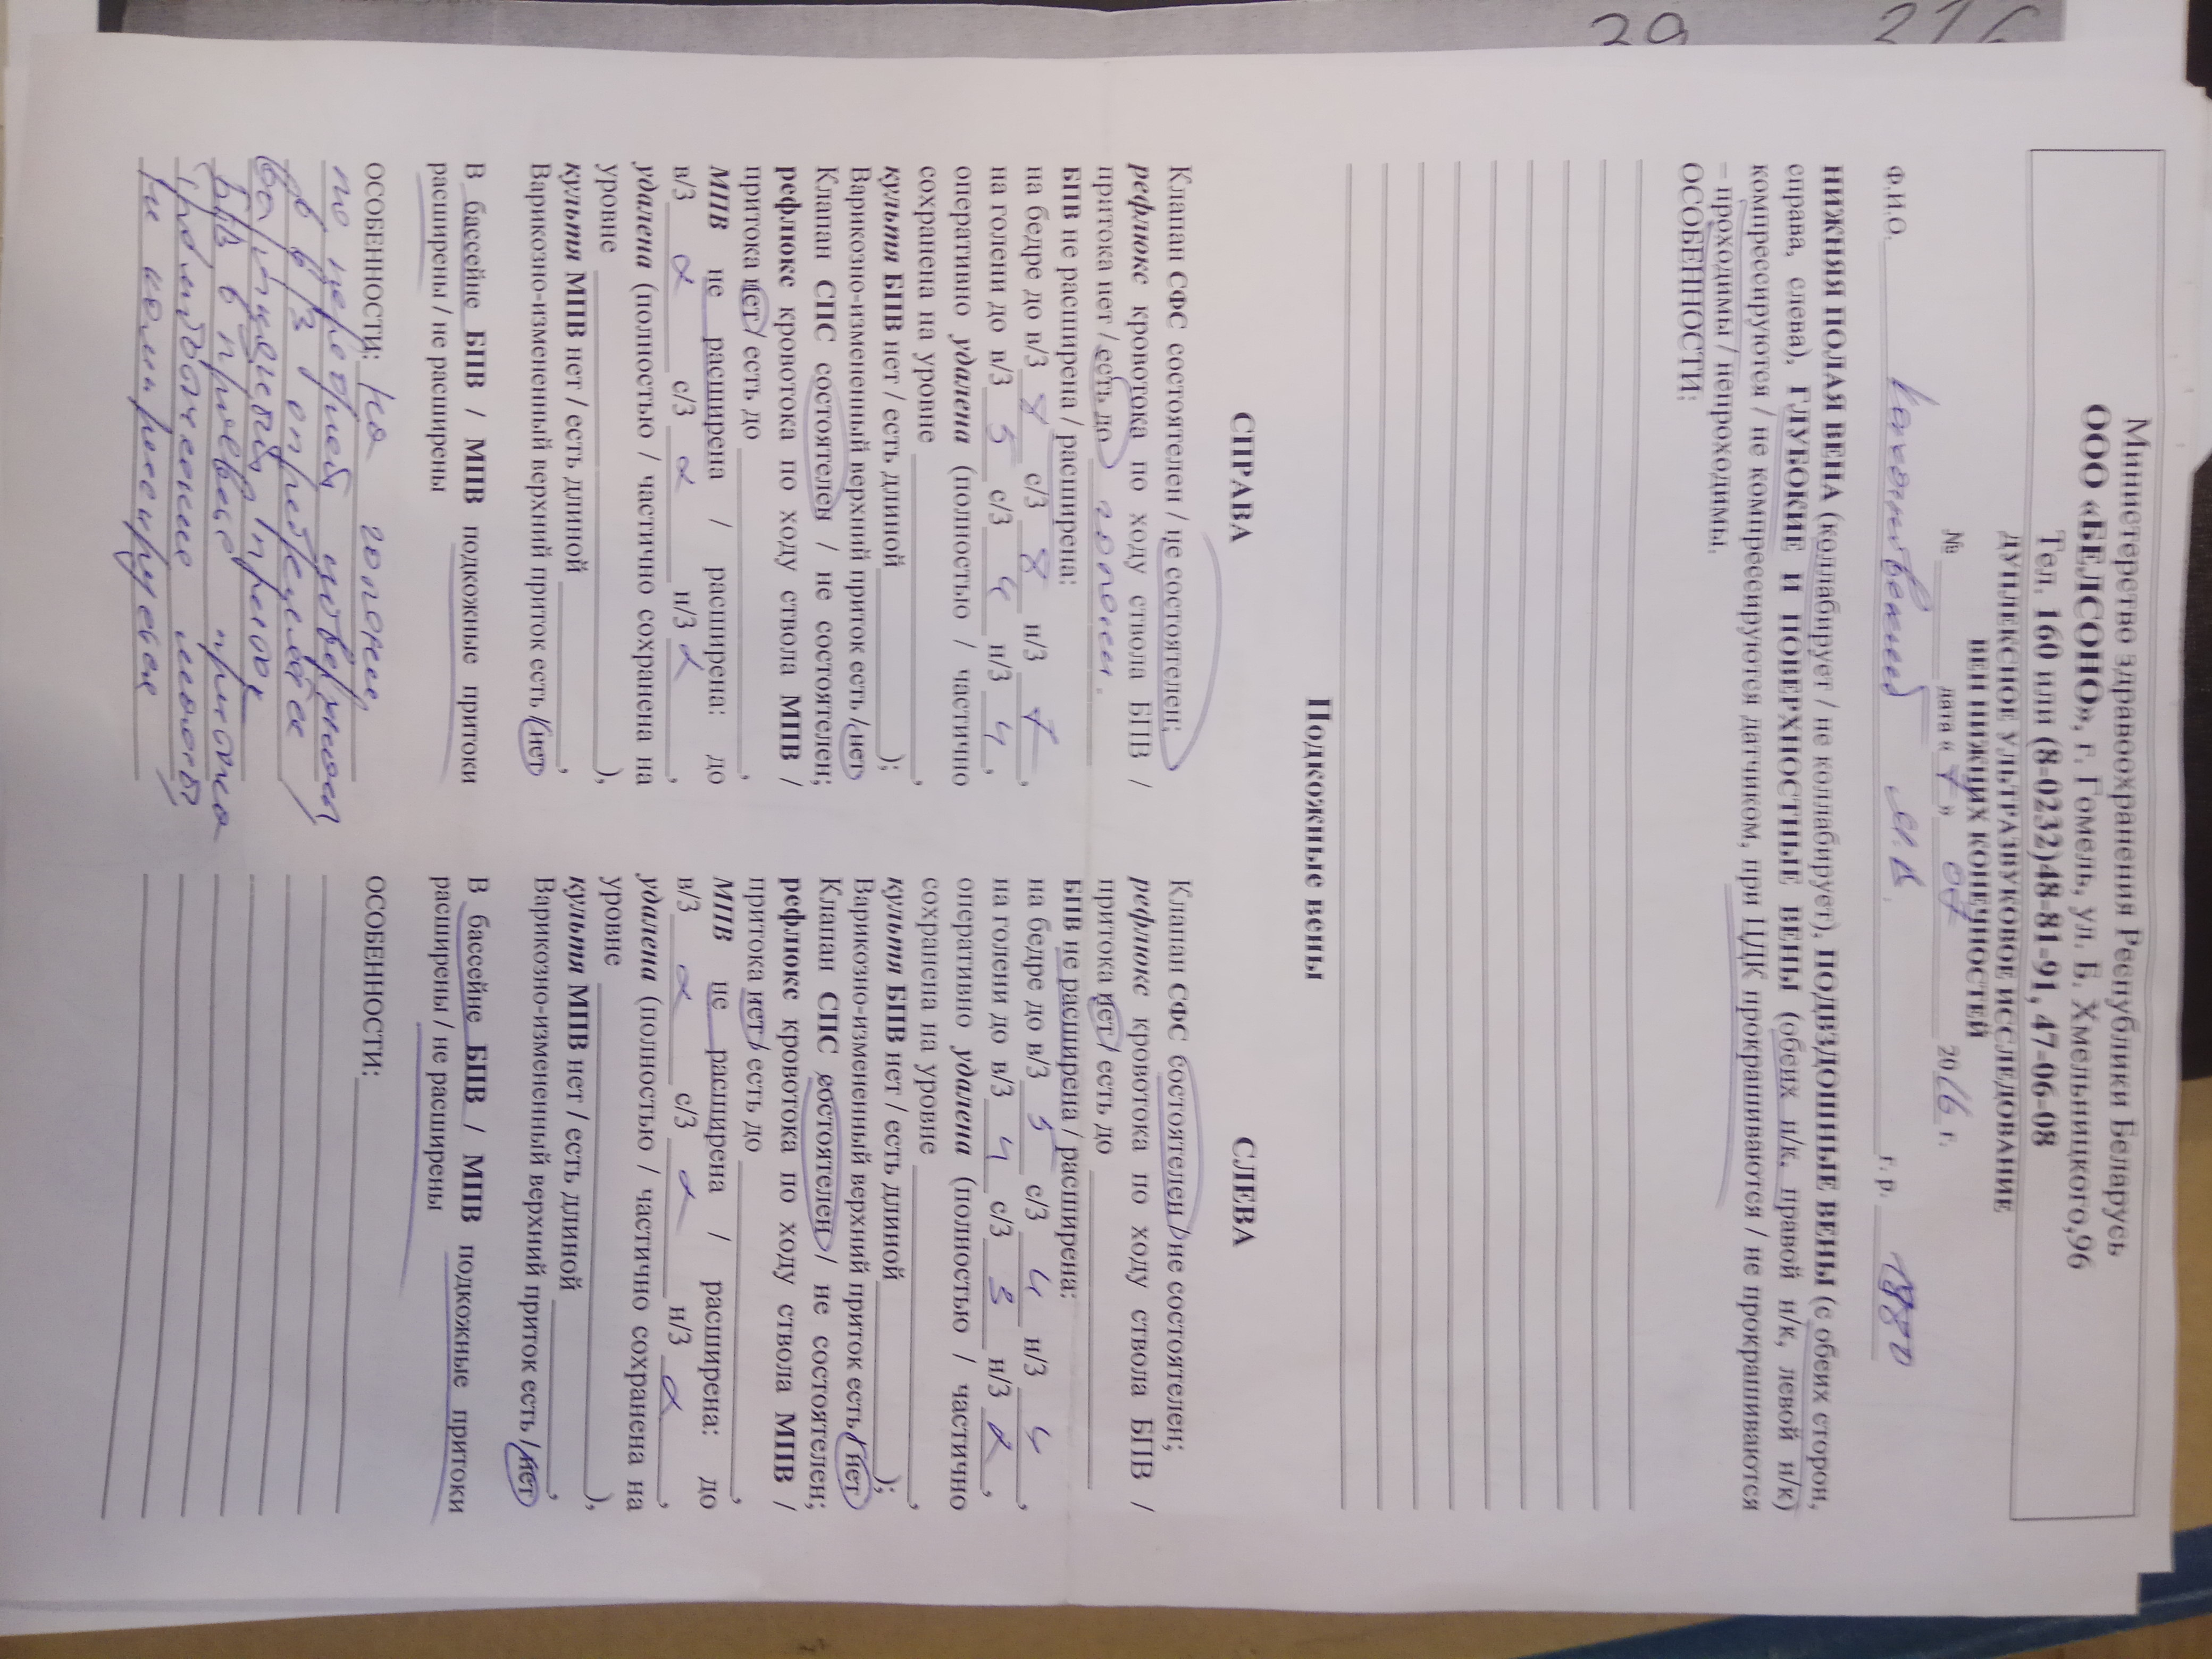 Министерство здравоохранения Республики Беларусь
ООО «БЕЛСОНО», г. Гомель, ул. Б. Хмельницкого,96
Тел. 160 или (8-0232)48-81-91, 47-06-08
ДУПЛЕКСНОЕ УЛЬТРАЗВУКОВОЕ ИССЛЕДОВАНИЕ
ВЕН НИЖНИХ КОНЕЧНОСТЕЙ
№ дата « 7 » 07 2016 г.
Ф.И.О. М.В. г. р. 1980
НИЖНЯЯ ПОЛАЯ ВЕНА (коллабирует / не коллабирует), ПОДВЗДОШНЫЕ ВЕНЫ (с обеих сторон,
справа, слева), ГЛУБОКИЕ И ПОВЕРХНОСТНЫЕ ВЕНЫ (обеих н/к, правой н/к, левой н/к)
компрессируются / не компрессируются датчиком, при ЦДК прокрашиваются / не прокрашиваются
– проходимы / непроходимы.
ОСОБЕННОСТИ:
Подкожные вены
СПРАВА
Клапан СФС состоятелен / не состоятелен;
рефлюкс кровотока по ходу ствола БПВ /
притока нет / есть до голени.
БПВ не расширена / расширена:
на бедре до в/3 8 с/3 8 н/3 7 ,
на голени до в/3 5 с/3 4 н/3 4 ,
оперативно удалена (полностью / частично
сохранена на уровне ,
культя БПВ нет / есть длиной );
Варикозно-измененный верхний приток есть / нет
Клапан СПС состоятелен / не состоятелен;
рефлюкс кровотока по ходу ствола МПВ /
притока нет / есть до ,
МПВ не расширена / расширена: до
в/3 2 с/3 2 н/3 2 ,
удалена (полностью / частично сохранена на
уровне ),
культя МПВ нет / есть длиной ,
Варикозно-измененный верхний приток есть / нет
В бассейне БПВ / МПВ подкожные притоки
расширены / не расширены
ОСОБЕННОСТИ: На голени
по передней поверхности
в в/3 определяется
приток
БПВ в просвете притока
тромботические массы,
не компрессируется
СЛЕВА
Клапан СФС состоятелен / не состоятелен;
рефлюкс кровотока по ходу ствола БПВ /
притока нет / есть до
БПВ не расширена / расширена:
на бедре до в/3 5 с/3 4 н/3 4 ,
на голени до в/3 4 с/3 3 н/3 2 ,
оперативно удалена (полностью / частично
сохранена на уровне ,
культя БПВ нет / есть длиной );
Варикозно-измененный верхний приток есть / нет
Клапан СПС состоятелен / не состоятелен;
рефлюкс кровотока по ходу ствола МПВ /
притока нет / есть до ,
МПВ не расширена / расширена: до
в/3 2 с/3 2 н/3 2 ,
удалена (полностью / частично сохранена на
уровне ),
культя МПВ нет / есть длиной ,
Варикозно-измененный верхний приток есть / нет
В бассейне БПВ / МПВ подкожные притоки
расширены / не расширены
ОСОБЕННОСТИ: